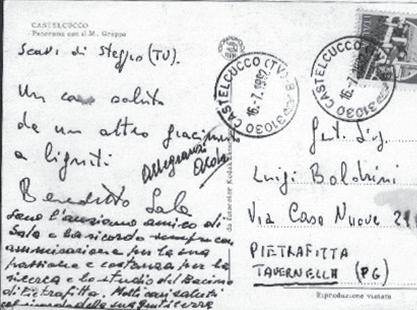 CASTELCUCCO
Panorama con il M. Grappa
Scavi di Steggio (TV).
Un caro saluto
da un altro giacimento
a ligniti
Benedetto Sala
CASTELCUCCO (TV)
16-7.1992
31030
CASTELCUCCO (TV)
16-7.1992
31030
Sono l'anziano amico di
Sala e la ricordo sempre con
ammirazione per la sua
passione e costanza per la
ricerca e lo studio del Bacino
di Pietrafitta. Molti cari saluti
Gent. Sig.
Luigi Boldrini
Via Case Nuove
PIETRAFITTA
TAVERNELLE (PG)
Riproduzione vietata